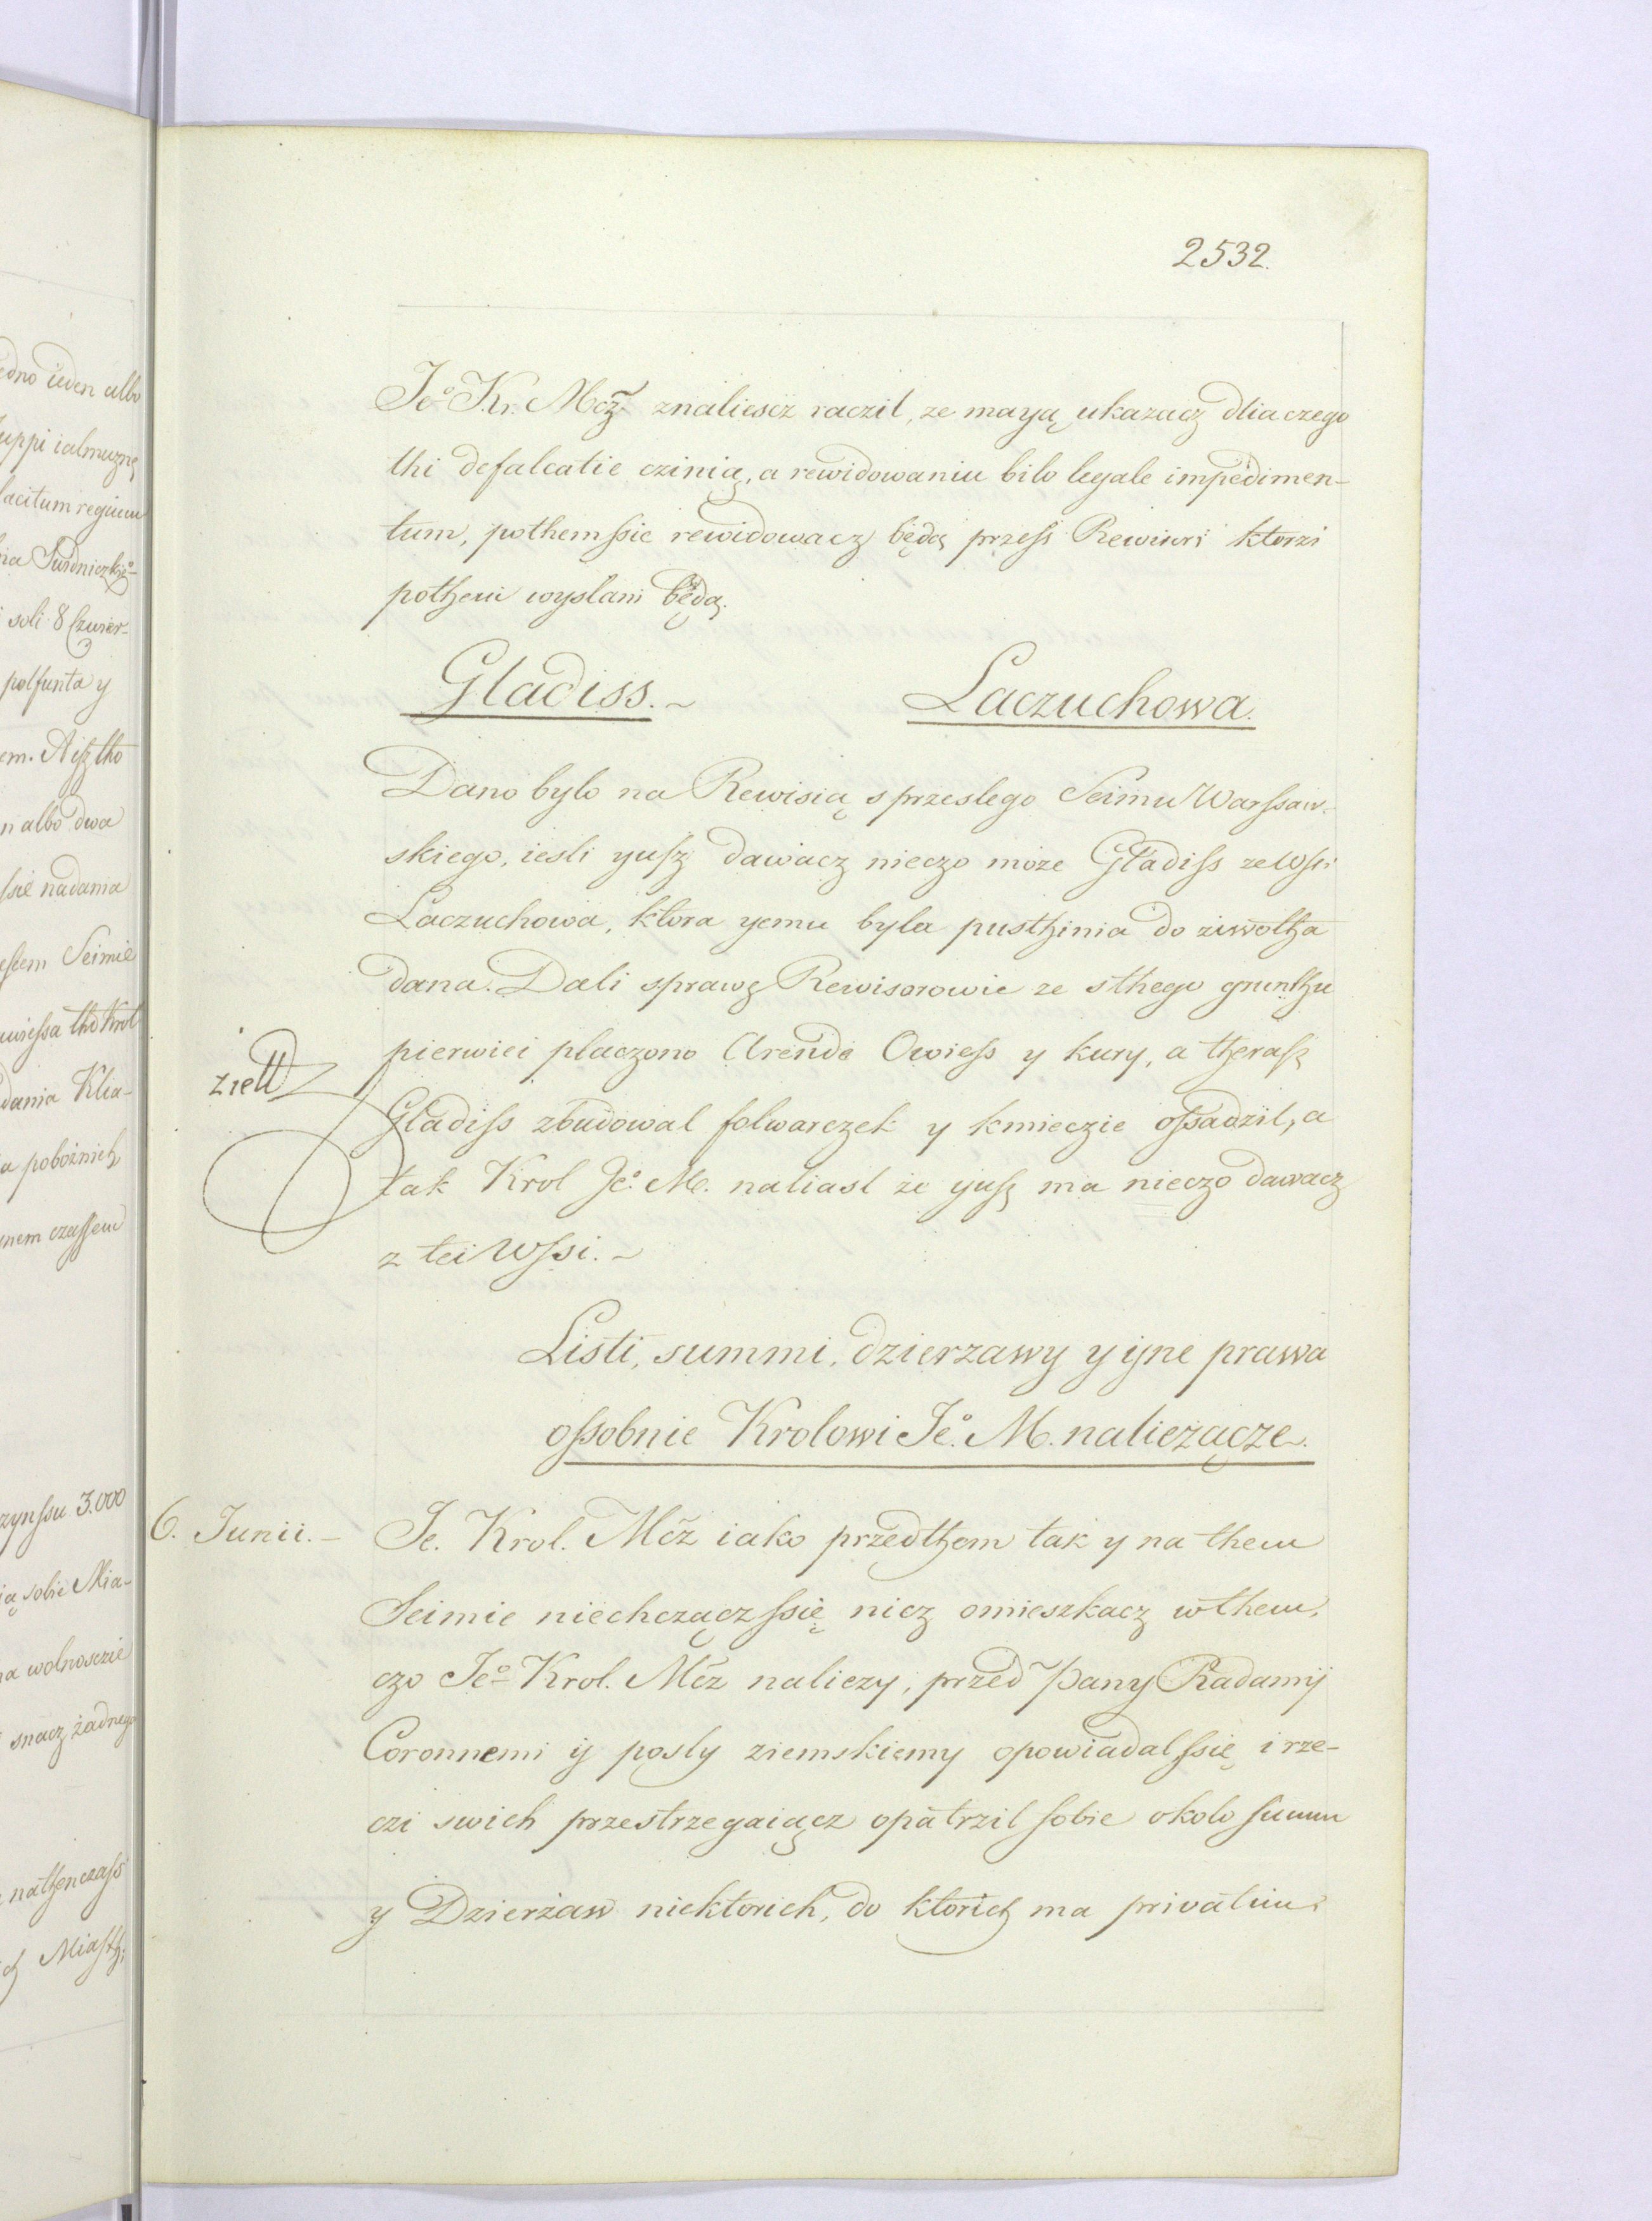 2532.
Je͠o Kr. Mcz͠ znaliescz raczil, ze mayą ukazacz dliaczego
thi defalcatie czinią, a rewidowaniu bilo legale impedimen-
tum, pothem ssie rewidowacz będą przess Rewisori ktorzi
pothem wyslani będą.
Gladiss. Laczuchowa.
Dano bylo na Rewisią s przeslego Seimu Warssaw-
skiego, iesli yusz dawacz nieczo może Gladiss ze Wssi
Laczuchowa, ktora yemu byla pusthinia do ziwotha
dana. Dali sprawę Rewisorowie ze sthego grunthu
pierwiei placzono Arende Owiess y kury, a therasz
Gladiss zbudowal folwarczek y kmieczie ossadzil, a
tak Krol Jeo. M. naliasl że yusz ma nieczo dawacz
z tei Wssi.
Listi, summi, dzierzawy y ijne prawa
ossobnie Krolowi Jeo. M. nalieżącze.
6. Junii.– Je. Krol. Mcz iako przedthem tak y na them
Seimie niechczącz ssię nicz omieszkacz w them,
czo Jeo Krol. Mcz naliezy, przed Pany Radamij
Coronnemi ij posly ziemskiemy opowiadal ssię i rze-
czi swich przestrzegaiącz opatrzil sobie okolo summ
y Dzierżaw niektorich, do ktorich ma privatim
dno ieden albo
uppi ialmuznę
lacitum regium
soli 8 Czwier-
polfunta y
em. A isz tho
n albo dwa
ssie nadania
Seimie
tho Krol
dania Klia-
pobożnich
nem czassem
zynssu 3.000
ią sobie Mia-
na wolnosczie
snacz żadnego
nathenczass
Miasth